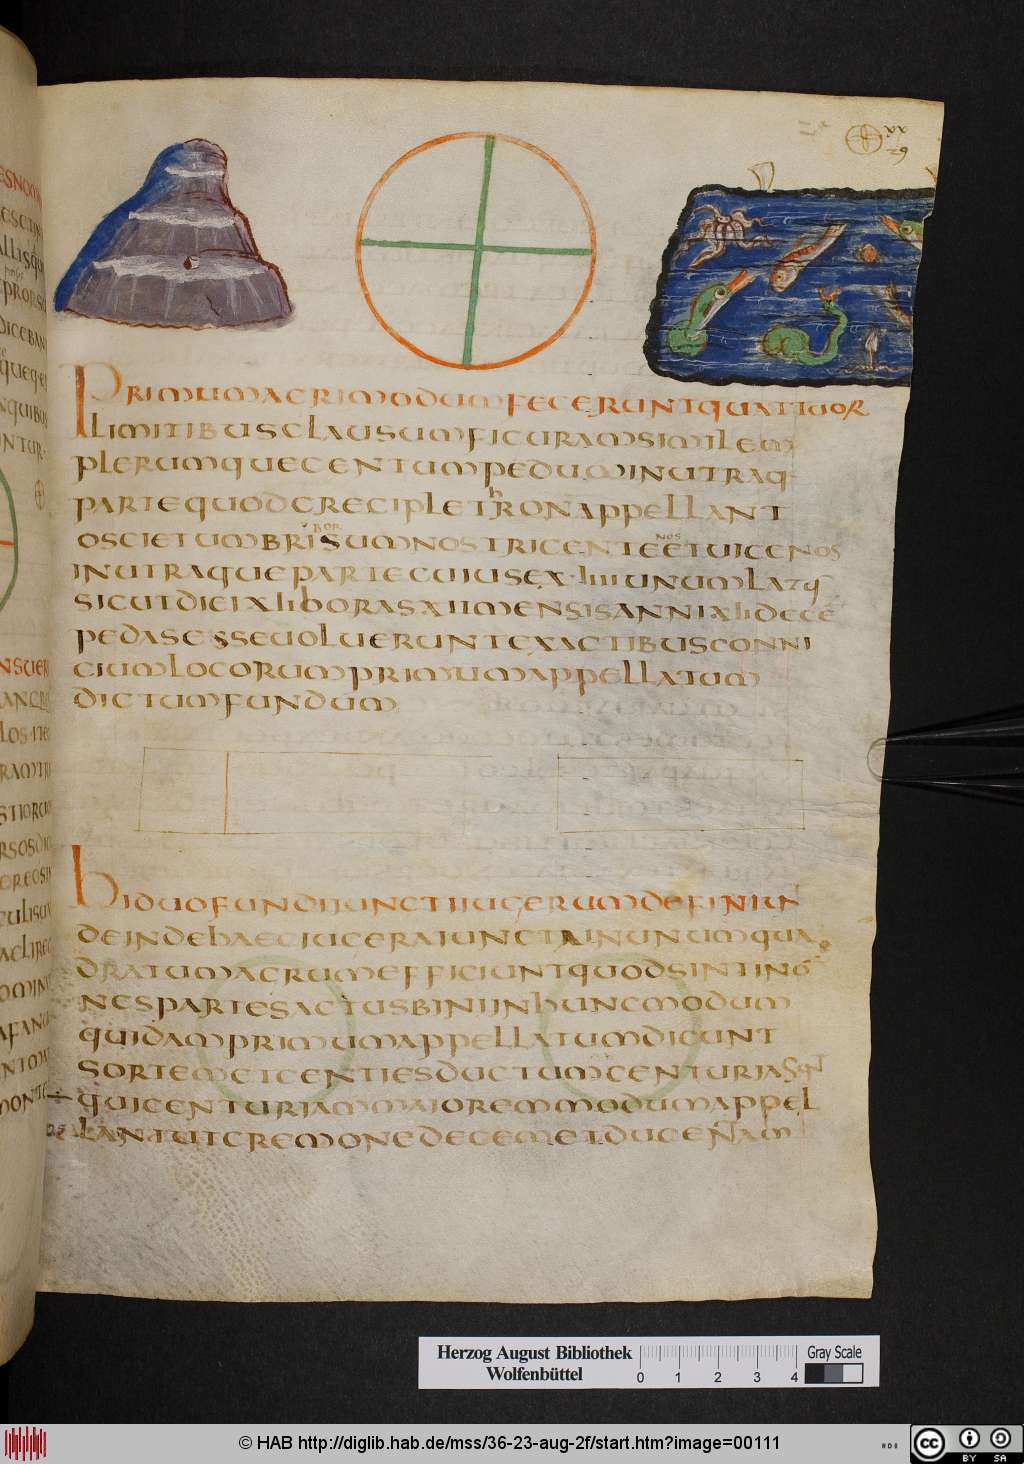 PRIMUMAGRIMODUMFECERUNTQUATTUOR
LIMITIBUSCLAUSUMFIGURAMSIMILEM
PLERUMQUECENTUMPEDUMINUTRAQ·
PARTEQUODGRECIPLETRONAPPELLANT
OSCIETUMBRISUMNOSTRICENTEETUICENOS
INUTRAQUEPARTECUIUSEX·IIIIUNUMLATQ
SICUTDIEIXIIHORASXIIMENSISANNIXIIDECE
PEDASESSEUOLUERUNTEXACTIBUSCONNI
CIUMLOCORUMPRIMUMAPPELLATUM
DICTUMFUNDUM
HIDUOFUNDIIUNCTIIUGERUMDEFINIUNT
DEINDEHAECIUGERAIUNCTAINUNUMQUA
DRATUMAGRUMEFFICIUNTQUODSINTINO
NESPARTESACTUSBINIINHUNCMODUM
QUIDAMPRIMUMAPPELLATUMDICUNT
SORTEMETCENTIESDUCTUMCENTURIAS
QUICENTURIAMMAIOREMMODUMAPPEL
LANTUTCREMONEDECEMETDUCENAM
Herzog August Bibliothek
Wolfenbüttel
0 1 2 3 4
Gray Scale
© HAB http://diglib.hab.de/mss/36-23-aug-2f/start.htm?image=00111
cc BY SA